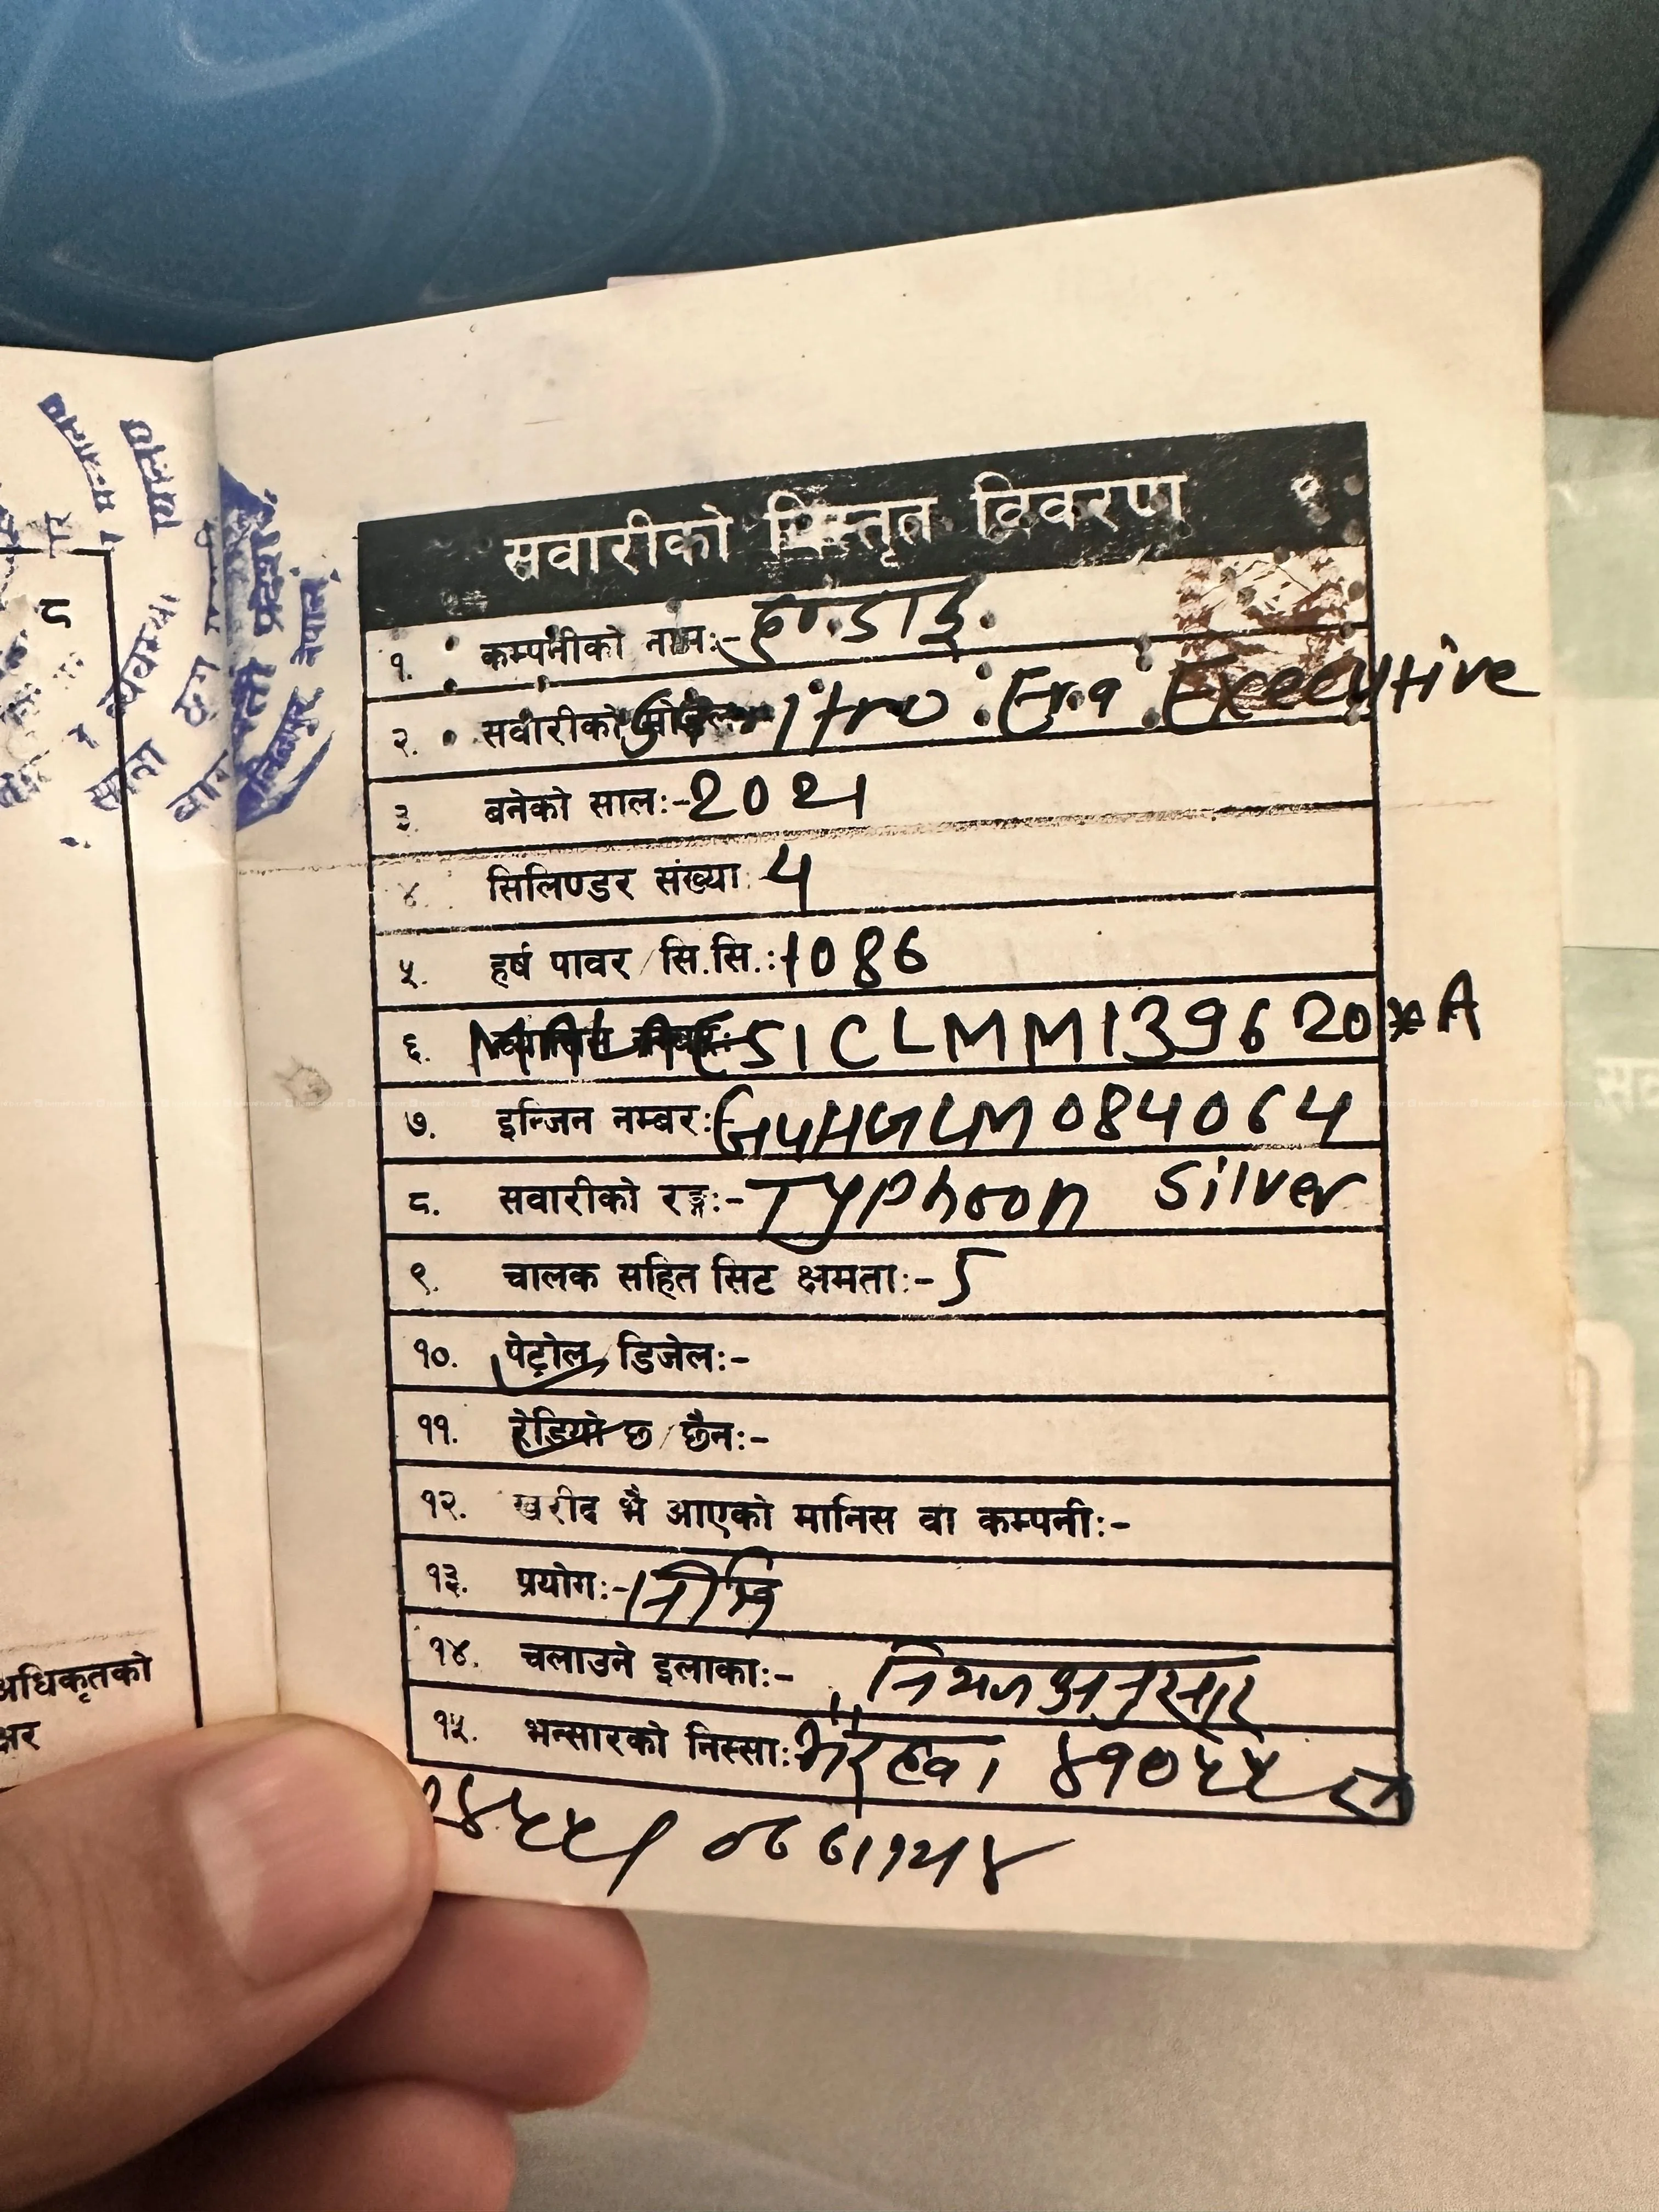 सवारीको विस्तृत विवरण
१. कम्पनीको नाम:- हुण्डाई
२. सवारीको मोडेल Era Executive
३. बनेको साल:- 2021
४. सिलिण्डर संख्या: 4
५. हर्ष पावर/सि.सि.: 1086
६. 51CLMM139620*A
७. इन्जिन नम्बर: G4HGLM084064
८. सवारीको रङ्ग:- Typhoon Silver
९. चालक सहित सिट क्षमता:- 5
१०. पेट्रोल/डिजेल:-
११. रेडियो छ/छैन:-
१२. खरीद भै आएको मानिस वा कम्पनी:-
१३. प्रयोग:- निजि
१४. चलाउने इलाका:- नियमअनुसार
१५. भन्सारको निस्सा: भैरहवा
८
नेपाल
अधिकृतको